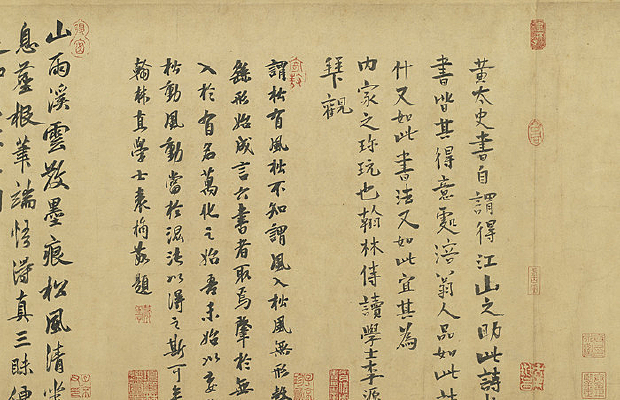 黃太史書自謂得江山之助此詩
書皆其得意處涪翁人品如此
什又如此書法又如此宜其為
內家之珍玩也翰林侍讀學士李源
拜觀
謂松有風松不知謂風入松風無形聲
繇形始成言六書者取焉肇於無
入於有名萬化之始吾未始以妄
松動風動當於混法以得之斯可
翰林直學士袁桷敬題
山雨溪雲散墨痕松風清坐
息塵根筆端悟得真三昧便